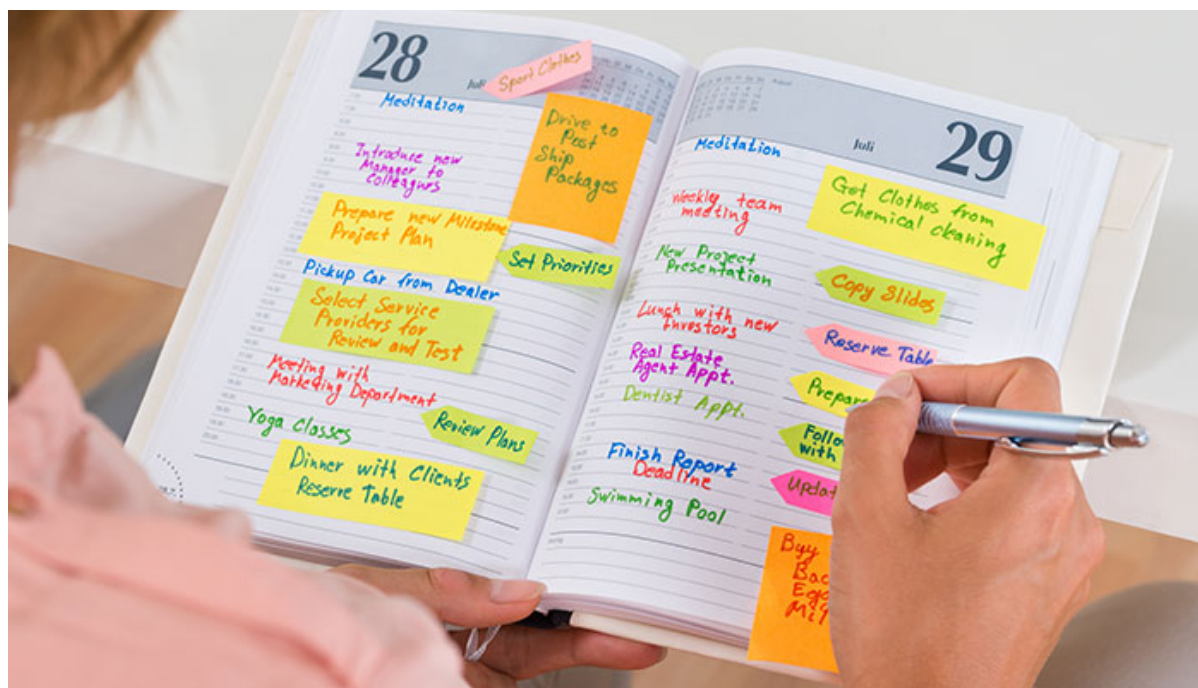 28
Juli
Sport Clothes
Meditation
Drive to
Post
Ship
Packages
Introduce new
Manager to
Colleagurs
Prepare new Milestone
Project Plan
Set Priorities
Pickup Car from Dealer
Select Service
Providers for
Review and Test
Meeting with
Marketing Department
Review Plans
Yoga Classes
Dinner with Clients
Reserve Table
29
Juli
Meditation
Get Clothes from
Chemical cleaning
Weekly team
meeting
New Project
Presentation
Copy Slides
Lunch with new
Investors
Reserve Table
Real Estate
Agent Appt.
Prepare
Dentist Appt.
Follo
with
Finish Report
Deadline
Updat
Swimming Pool
Buy
Bac
Egg
Mil